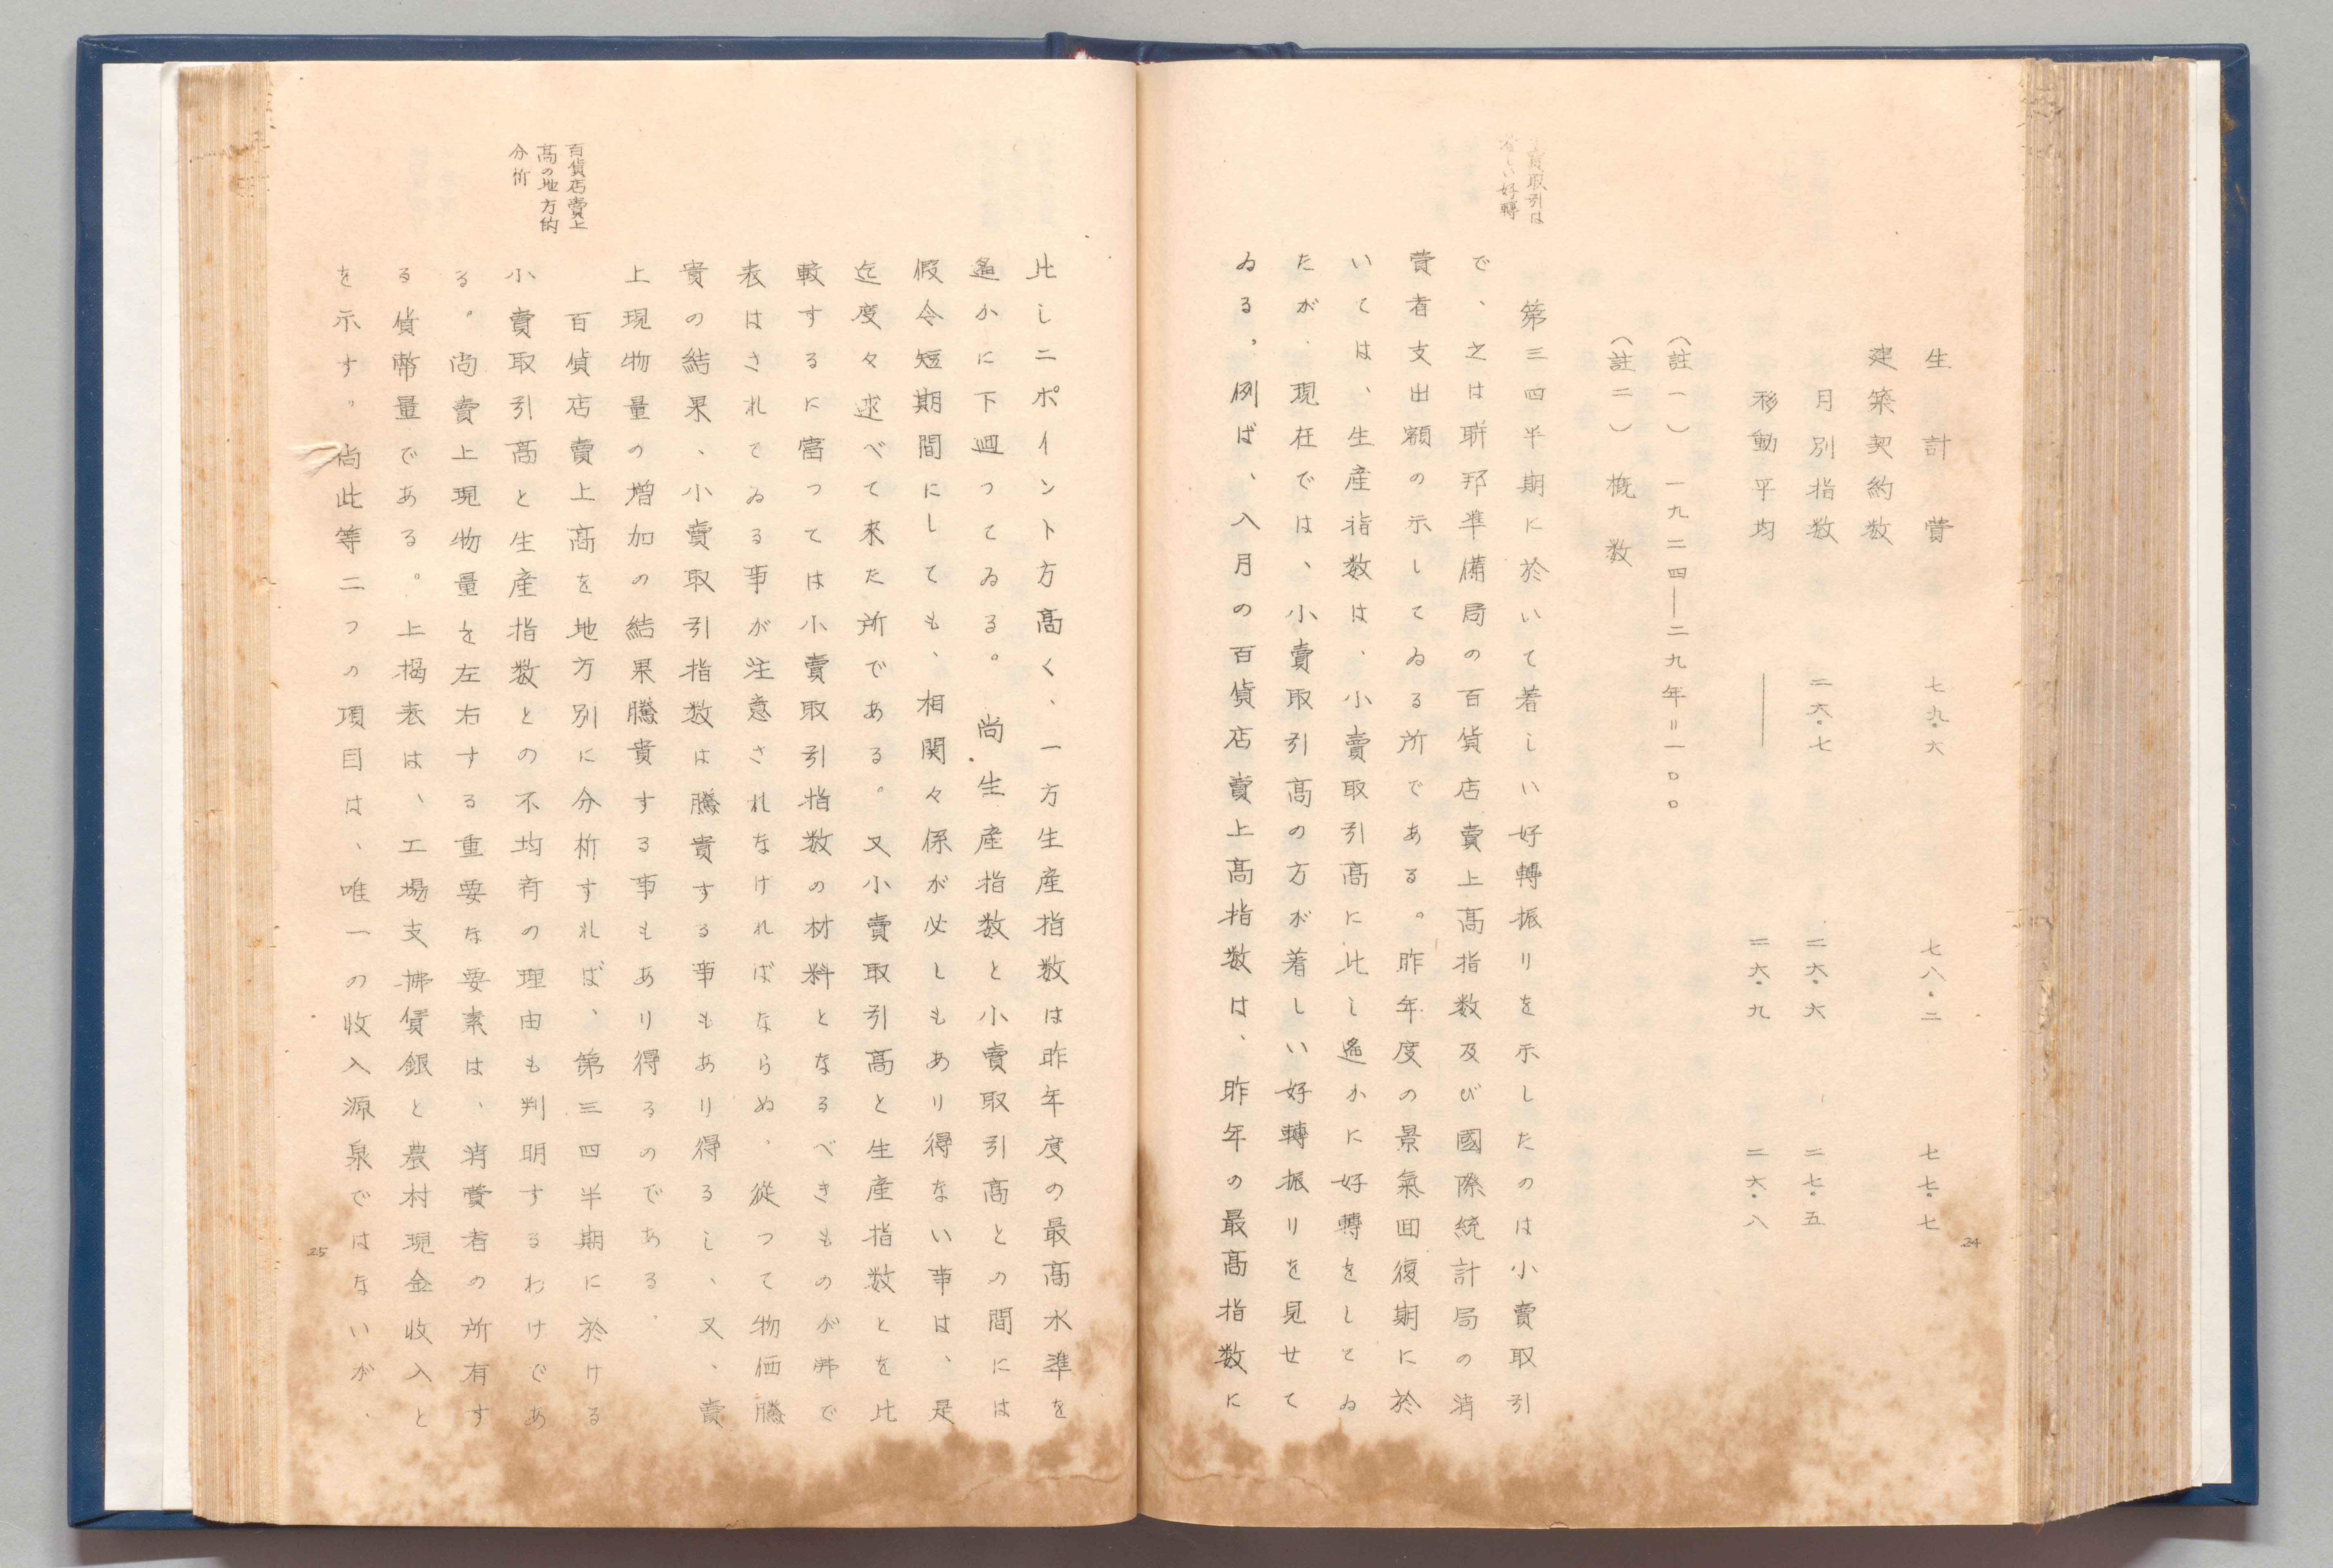 生計費　七九・六　七八・二　七七・七
建築契約数
月別指数　二六・七　二六・六　二七・五
移動平均　――　二六・九　二六・八
（註一）一九二四―二九年＝一〇〇
（註二）概数
賣取引は
著しい好轉
第三四半期に於いて著しい好轉振りを示したのは小賣取引
で、之は聯邦準備局の百貨店賣上高指数及び國際統計局の消
費者支出額の示してゐる所である。昨年度の景氣回復期に於
いては、生産指数は、小賣取引高に比し遙かに好轉をしてゐ
たが、現在では、小賣取引高の方が著しい好轉振りを見せて
ゐる。例ば、八月の百貨店賣上高指数は、昨年の最高指数に
24
比し二ポイント方高く、一方生産指数は昨年度の最高水準を
遙かに下廻つてゐる。尚生産指数と小賣取引高との間には
假令短期間にしても、相関々係が必しもあり得ない事は、是
迄度々述べて來た所である。又小賣取引高と生産指数とを比
較するに當つては小賣取引指数の材料となるべきものが弗で
表はされてゐる事が注意されなければならぬ、從つて物価騰
貴の結果、小賣取引指数は騰貴する事もあり得るし、又、賣
上現物量の増加の結果騰貴する事もあり得るのである。
百貨店賣上
高の地方的
分析
百貨店賣上高を地方別に分析すれば、第三四半期に於ける
小賣取引高と生産指数との不均斉の理由も判明するわけであ
る。尚賣上現物量を左右する重要な要素は、消費者の所有す
る貨幣量である。上掲表は、工場支拂賃銀と農村現金收入と
を示す。尚此等二つの項目は、唯一の收入源泉ではないが、
25